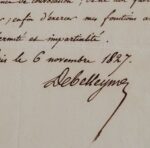 ; enfin d'exercer mes fonctions a
fermeté et impartialité.
is le 6 novembre 1827.
Debelleyme